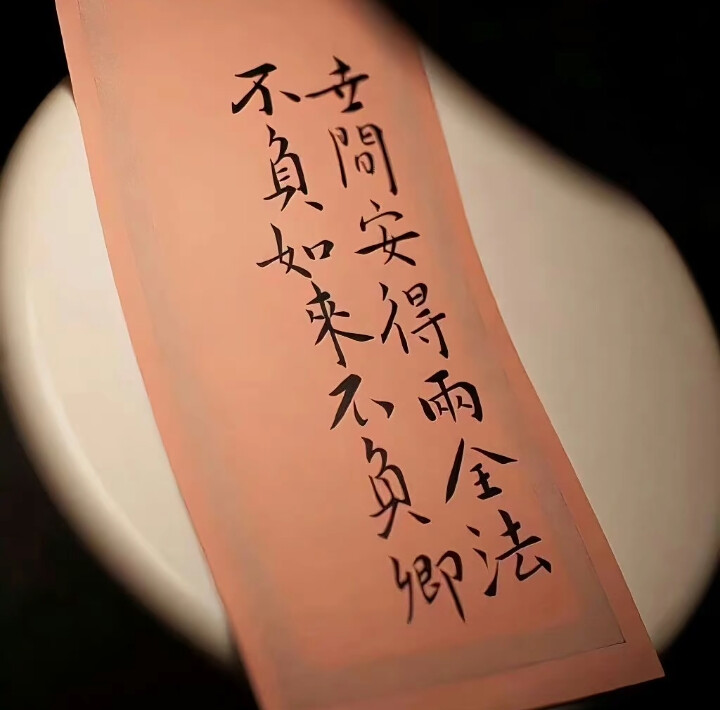 世間安得兩全法
不負如來不負卿